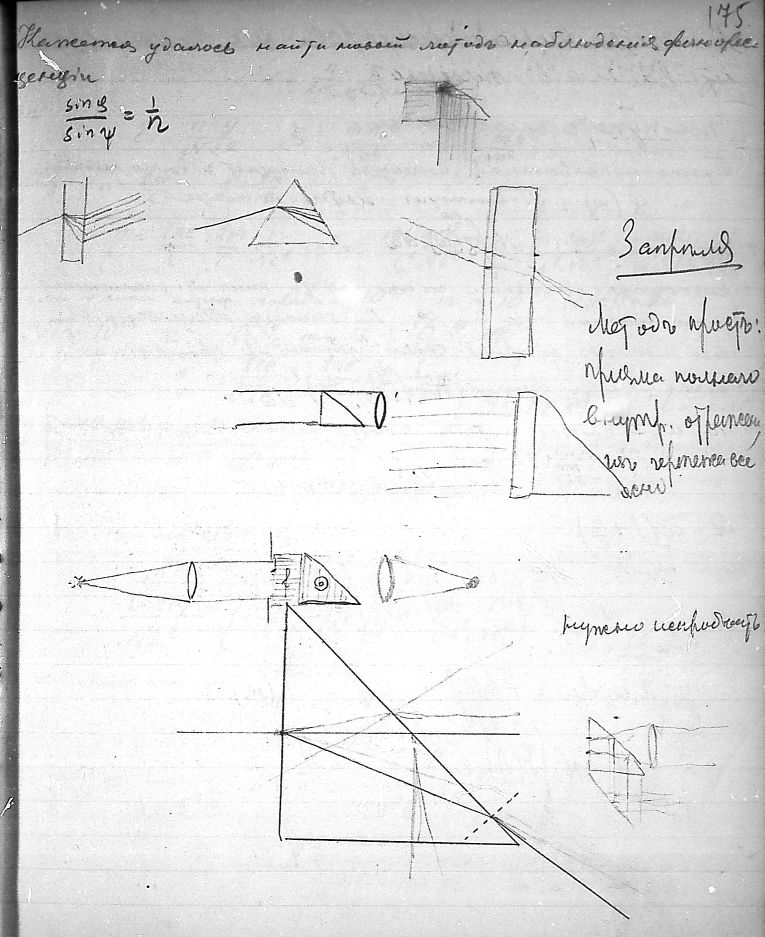 175.
Кажется удалось найти новый методъ наблюденія флюорес-
ценціи
sin φ / sin ψ = 1/n
3 апрѣля
Методъ простъ:
призма полнаго
внутр. отражен.
изъ чертежа все
ясно
Нужно испробовать